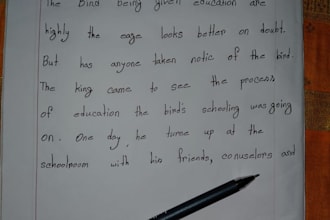 The Bird being given education are
highly the cage looks better on doubt.
But has anyone taken notic of the bird.
The king came to see the process
of education the bird's schooling was going
on. One day, he turne up at the
schoolroom with his friends, conuselors and